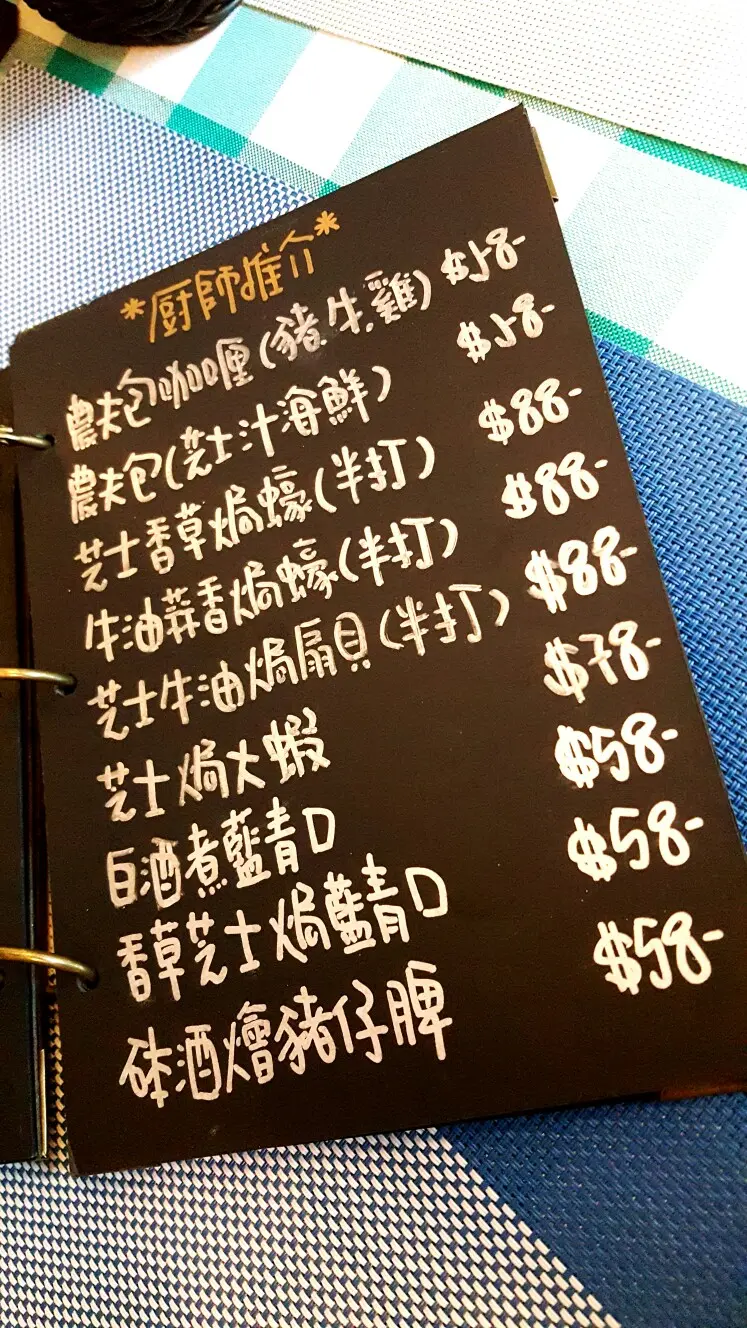 *厨師推介*
農夫包咖喱(豬,牛,雞) $58-
農夫包(芝士汁海鮮) $58-
芝士香草焗蠔(半打) $88-
牛油蒜香焗蠔(半打) $88-
芝士牛油焗扇貝(半打) $88-
芝士焗大蝦 $78-
白酒煮藍青口 $58-
香草芝士焗藍青口 $58-
砵酒燴豬仔髀 $58-